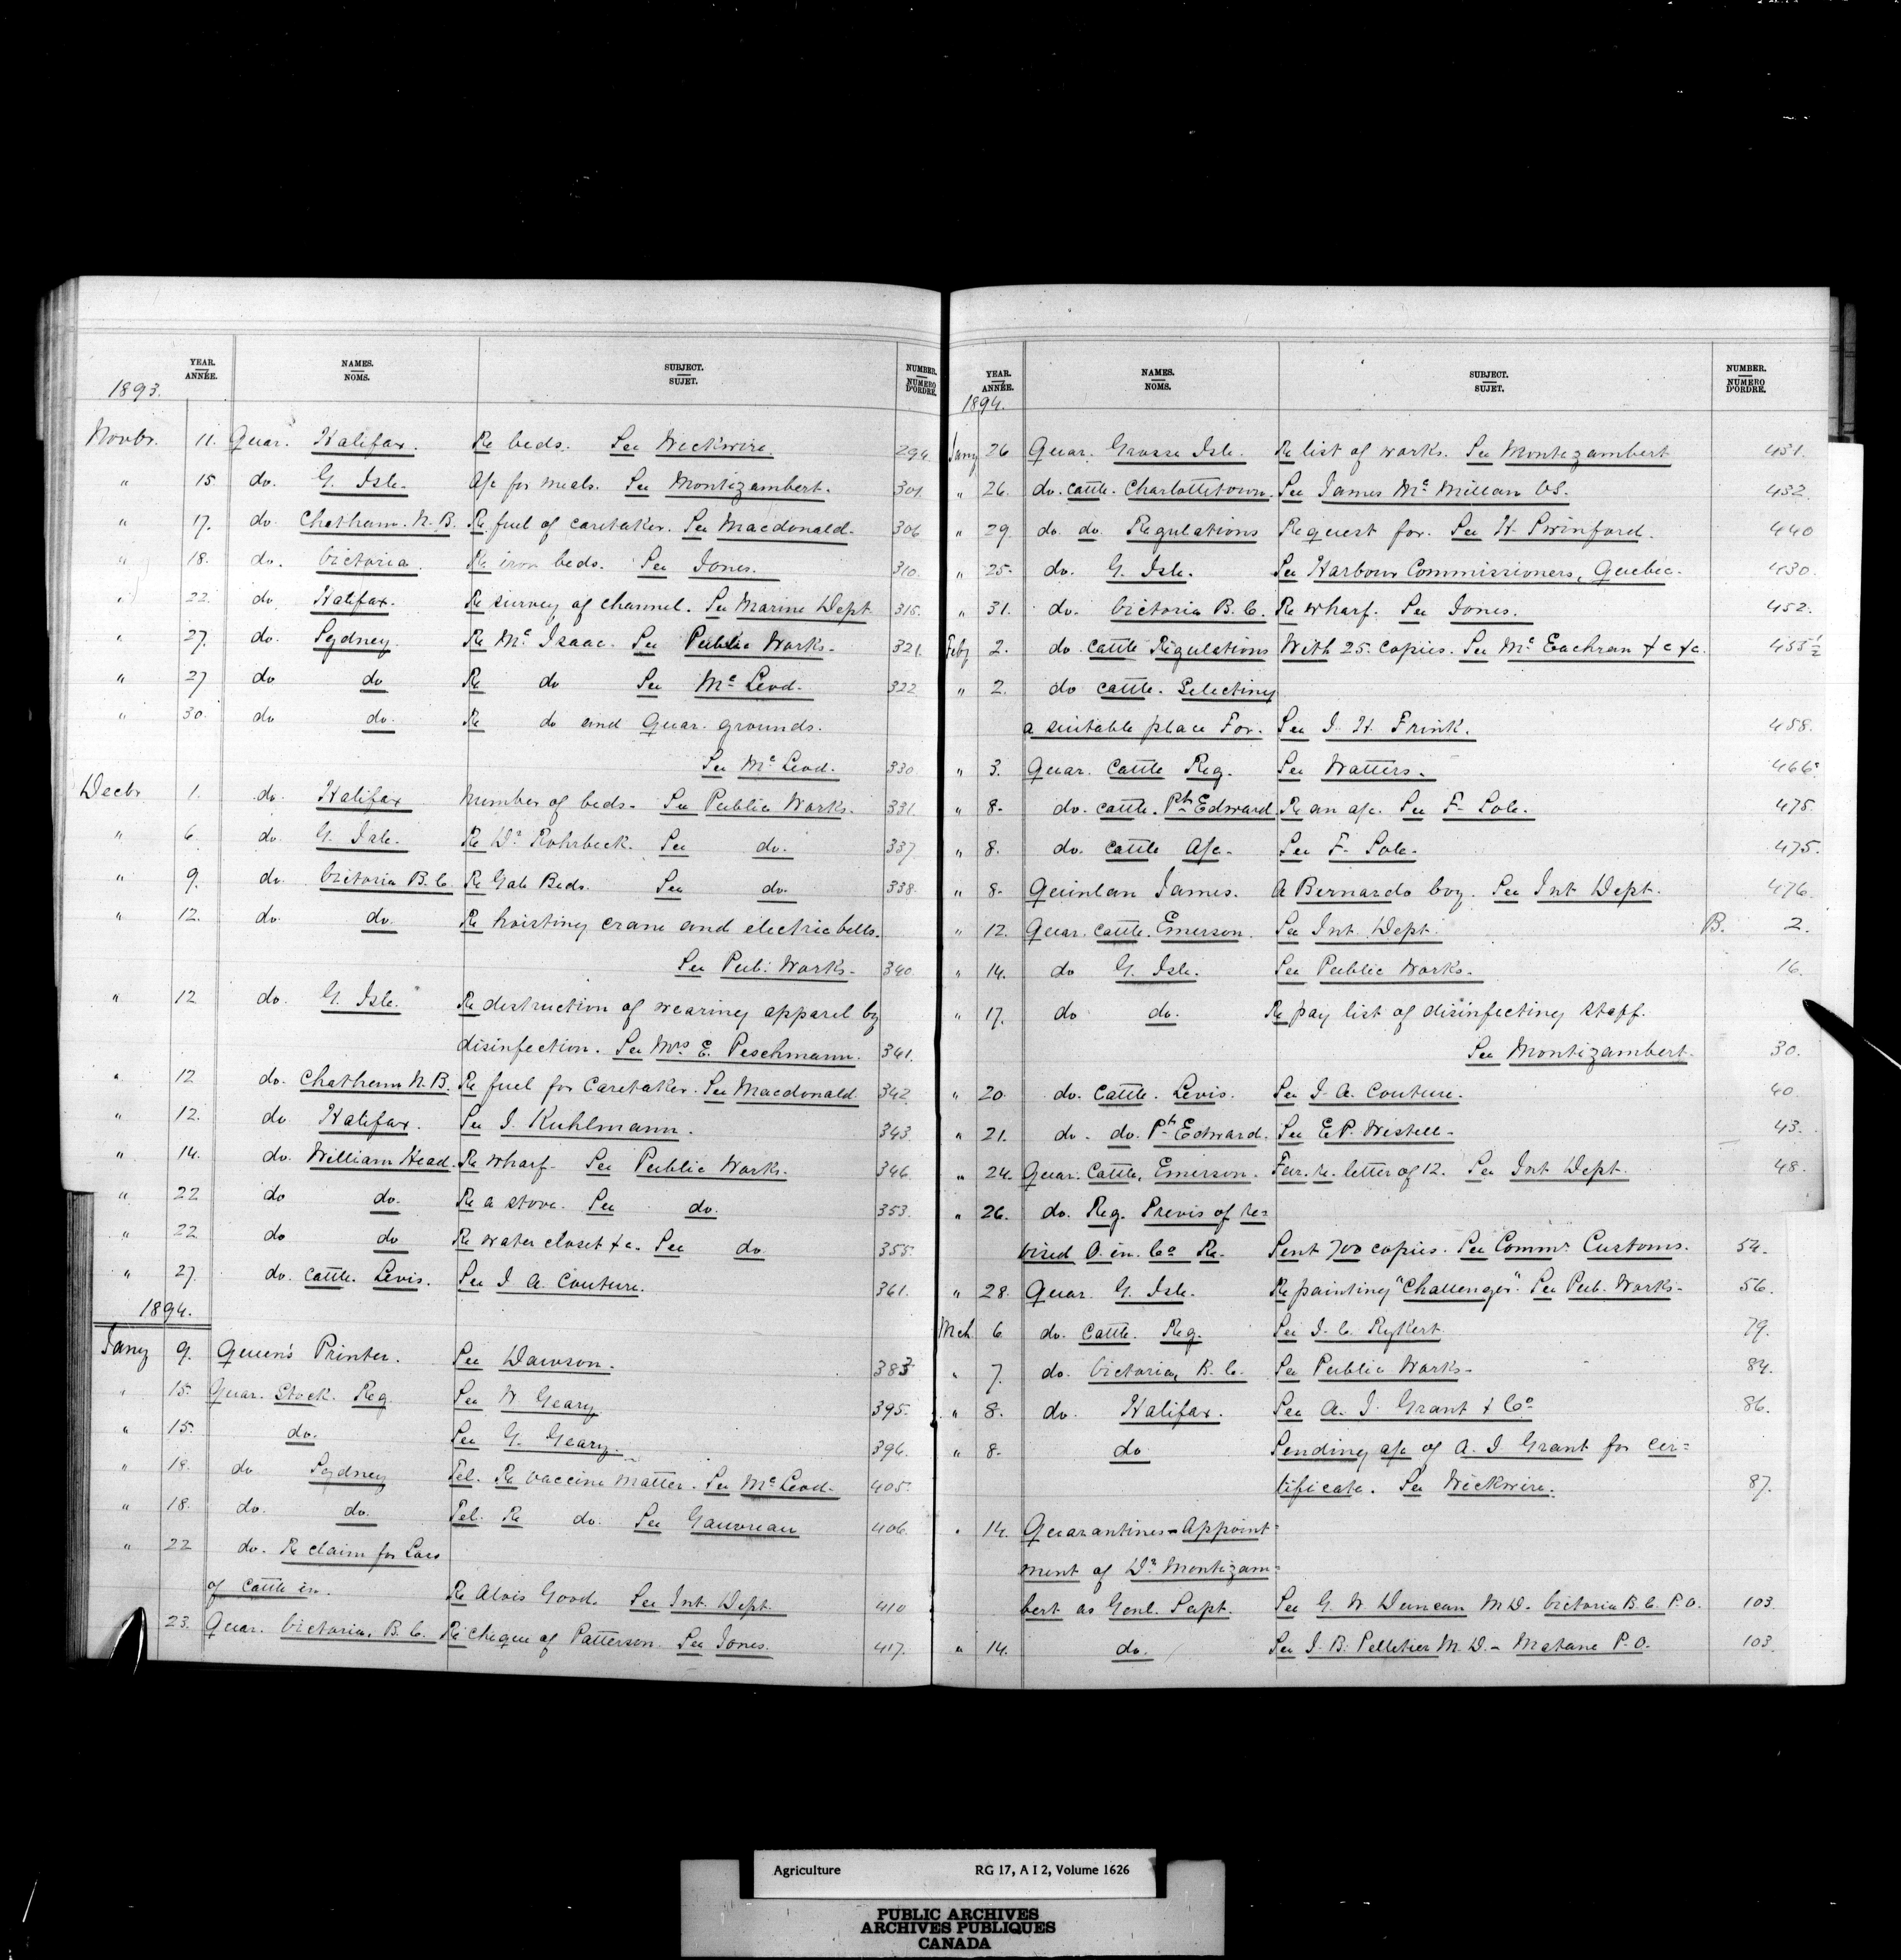 YEAR. ANNÉE. NAMES. NOMS. SUBJECT. SUJET. NUMBER. NUMERO D'ORDRE.
1893.
Novbr. 11. Quar. Halifax. Re beds. See Wickwire. 294
" 15 do. G. Isle. A/c for meals. See Montizambert. 301.
" 17. do. Chatham. N.B. Re fuel of caretaker. See Macdonald. 306
" 18. do. Victoria. Re iron beds. See Jones. 310.
" 22. do. Halifax. Re survey of channel. See Marine Dept. 315.
" 27. do. Sydney. Re Mc Isaac. See Public Works. 321.
" 27 do do Re do See Mc Leod. 322
" 30. do do. Re do and Quar. grounds.
See Mc Leod. 330
Decbr 1. do. Halifax Number of beds. See Public Works. 331.
" 6. do. G. Isle. Re Dr. Rohrbeck. See do. 337
" 9. do. Victoria B.C. Re Gab Beds. See do. 338.
" 12. do. do. Re hoisting crane and electric bells.
See Pub: Works. 340.
" 12 do. G. Isle. Re destruction of wearing apparel by
disinfection. See Mrs E. Peschmann. 341.
" 12 do. Chatham N.B. Re fuel for Caretaker. See Macdonald. 342.
" 12. do Halifax. See J. Kuhlmann. 343.
" 14. do. William Head. Re wharf. See Public Works. 346.
" 22 do do. Re a stove. See do. 353.
" 22 do do Re water closet &c. See do. 355.
" 27. do. Cattle. Levis. See J. A. Couture. 361.
1894.
Jany 9. Queen's Printer. See Dawson. 383
" 15. Quar. Stock. Reg. See W. Geary 395.
" 15. do. See G. Geary. 394.
" 18. do Sydney Tel. Re vaccine matter. See Mc Leod. 405.
" 18. do. do. Tel. Re do. See Gauvreau 406.
" 22 do. Re claim for Loss
of Cattle in. Re Alois Good. See Int. Dept. 410
23. Quar. Victoria, B.C. Re cheque of Patterson. See Jones. 417.
YEAR. ANNÉE. NAMES. NOMS. SUBJECT. SUJET. NUMBER. NUMERO D'ORDRE.
1894.
Jany 26 Quar. Grosse Isle. Re list of works. See Montizambert 431.
" 26. do. cattle. Charlottetown. See James Mc Millan VS. 432.
" 29. do. do. Regulations Request for. See H. Swinford. 440
" 25. do. G. Isle. See Harbour Commissioners, Quebec. 430.
" 31. do. Victoria B.C. Re wharf. See Jones. 452.
Feby 2. do. Cattle Regulations With 25. copies. See Mc Eachran &c &c. 455 1/2
" 2. do cattle. Selecting
a suitable place For. See J. H. Frink. 458.
" 3. Quar. Cattle Reg. See Watters. 466.
" 8. do. cattle. Pt. Edward. Re an a/c. See F. Sole. 475.
" 8. do. cattle A/c. See F. Sole. 475.
" 8. Quinlan James. A Bernardo boy. See Int Dept. 476.
" 12. Quar. Cattle. Emerson. See Int. Dept. B. 2.
" 14. do G. Isle. See Public Works. 16.
" 17. do do. Re pay list of disinfecting staff.
See Montizambert. 30.
" 20. do. Cattle. Levis. See J. A. Couture. 40.
" 21. do. do. Pt. Edward. See E. P. Westell. 43.
" 24. Quar. Cattle, Emerson. Fur. re. letter of 12. See Int Dept. 48.
" 26. do. Reg. Previs of re=
vised O. in. Co Re. Sent 700 copies. See Commr. Customs. 54.
" 28. Quar. G. Isle. Re painting "Challenger". See Pub. Works. 56.
Mch 6. do. Cattle. Reg. See J. C. Rykert. 79.
" 7. do. Victoria, B.C. See Public Works. 84.
" 8. do. Halifax. See A. J. Grant & Co 86.
" 8. do Sending a/c of A. J Grant for cer=
tificate. See Wickwire. 87.
" 14. Quarantines - Appoint=
ment of Dr. Montizam=
bert as Genl. Supt. See G. W. Duncan M.D. Victoria B.C. P.O. 103.
" 14. do. See J. B. Pelletier M.D. - Matane P.O. 103.
Agriculture RG 17, A I 2, Volume 1626
PUBLIC ARCHIVES
ARCHIVES PUBLIQUES
CANADA